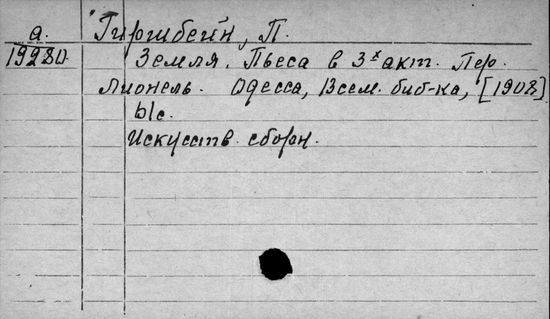 а. Гиршбейн, П.
19280. Земля. Пьеса в 3х акт. Пер.
Лионель. Одесса, Всем. биб-ка, [1908]
b/c.
Искусств. сборн.